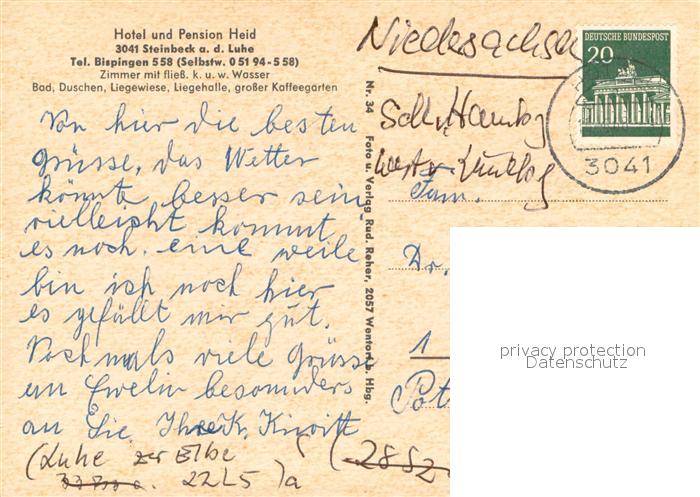 Hotel und Pension Heid
3041 Steinbeck a. d. Luhe
Tel. Bispingen 558 (Selbstw. 0 51 94-5 58)
Zimmer mit fließ. k. u. w. Wasser
Bad, Duschen, Liegewiese, Liegehalle, großer Kaffeegarten
Von hier die besten
Grüsse, das Wetter
könnte besser sein
vielleicht kommt
es noch. eine weile
bin ich noch hier
es gefällt mir gut.
Nochmals viele Grüsse
an Ewelin besonders
an Sie, Ihre K.
(Luhe zur Elbe
22L5)a
Nr. 34 Foto u. Verlag Rud. Reher, 2057 Wentorf b. Hbg.
Niedersachsen
DEUTSCHE BUNDESPOST
20
3041
Fam.
Dr.
1
Pot
(2852
privacy protection
Datenschutz